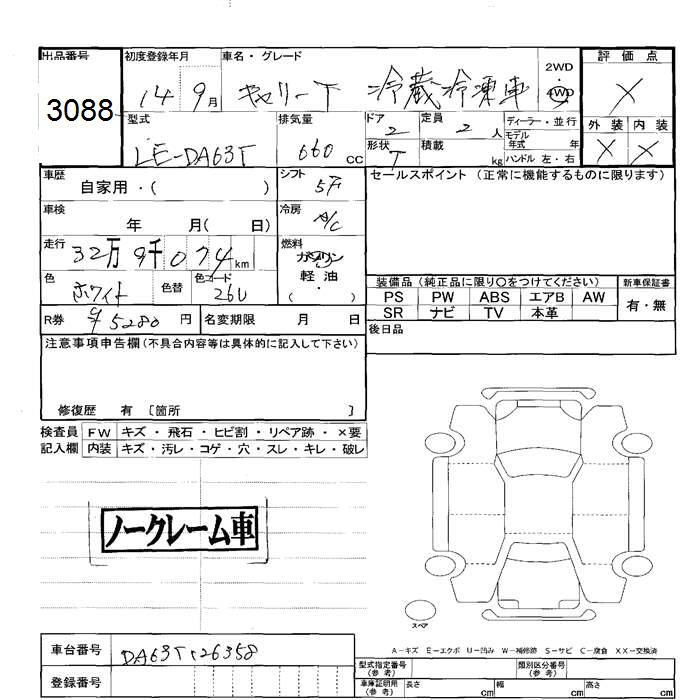 出品番号 初度登録年月 車名・グレード 評価点
3088 14 9月 キャリーT 冷蔵冷凍車 2WD・4WD X
型式 排気量 ドア 定員 ディーラー・並行 外装 内装
LE-DA63T 660cc 2 2人 モデル年式 年 X X
形状 T 積載 kg ハンドル 左・右
車歴 シフト セールスポイント (正常に機能するものに限ります)
自家用・( ) 5F
車検 冷房
年 月( 日) A/C
走行 燃料
32万9千074km ガソリン
軽油
・
( )
色 色替 色コード
ホワイト 26U
装備品 (純正品に限り○をつけてください) 新車保証書
PS PW ABS エアB AW 有・無
SR ナビ TV 本革
R券 5280円 名変期限 月 日
後日品
注意事項申告欄(不具合内容等は具体的に記入して下さい)
修復歴 有 〔箇所 〕
検査員 FW キズ・飛石・ヒビ割・リペア跡・×要
記入欄 内装 キズ・汚レ・コゲ・穴・スレ・キレ・破レ
ノークレーム車
スペア
A-キズ E-エクボ U-凹み W-補修跡 S-サビ C-腐食 XX-交換済
車台番号 DA63T-126358
登録番号
型式指定番号(参考) 類別区分番号(参考)
車庫証明用(参考) 長さ cm 幅 cm 高さ cm